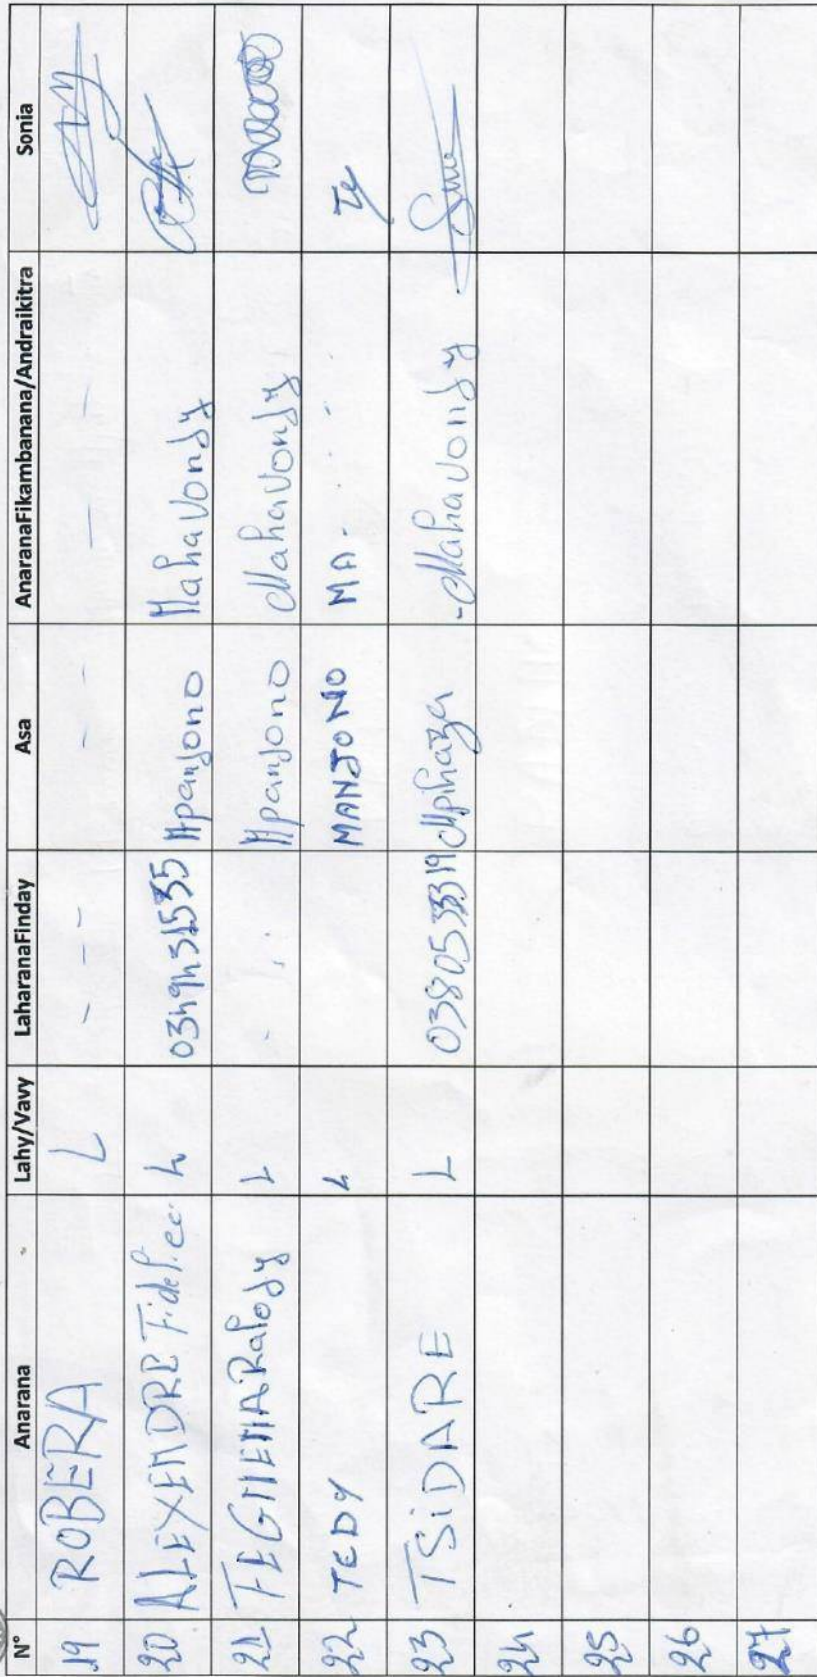 N° Anarana Lahy/Vavy LaharanaFinday Asa AnaranaFikambanana/Andraikitra Sonia
19 ROBERA L - - - - - - - -
20 ALEXENDRE L Mpanjono Mahavondy
21 L Mpanjono Mahavondy
22 TEDY L MANJONO MA-
23 TSIDARE L Mpihaza -Mahavondy
24
25
26
27